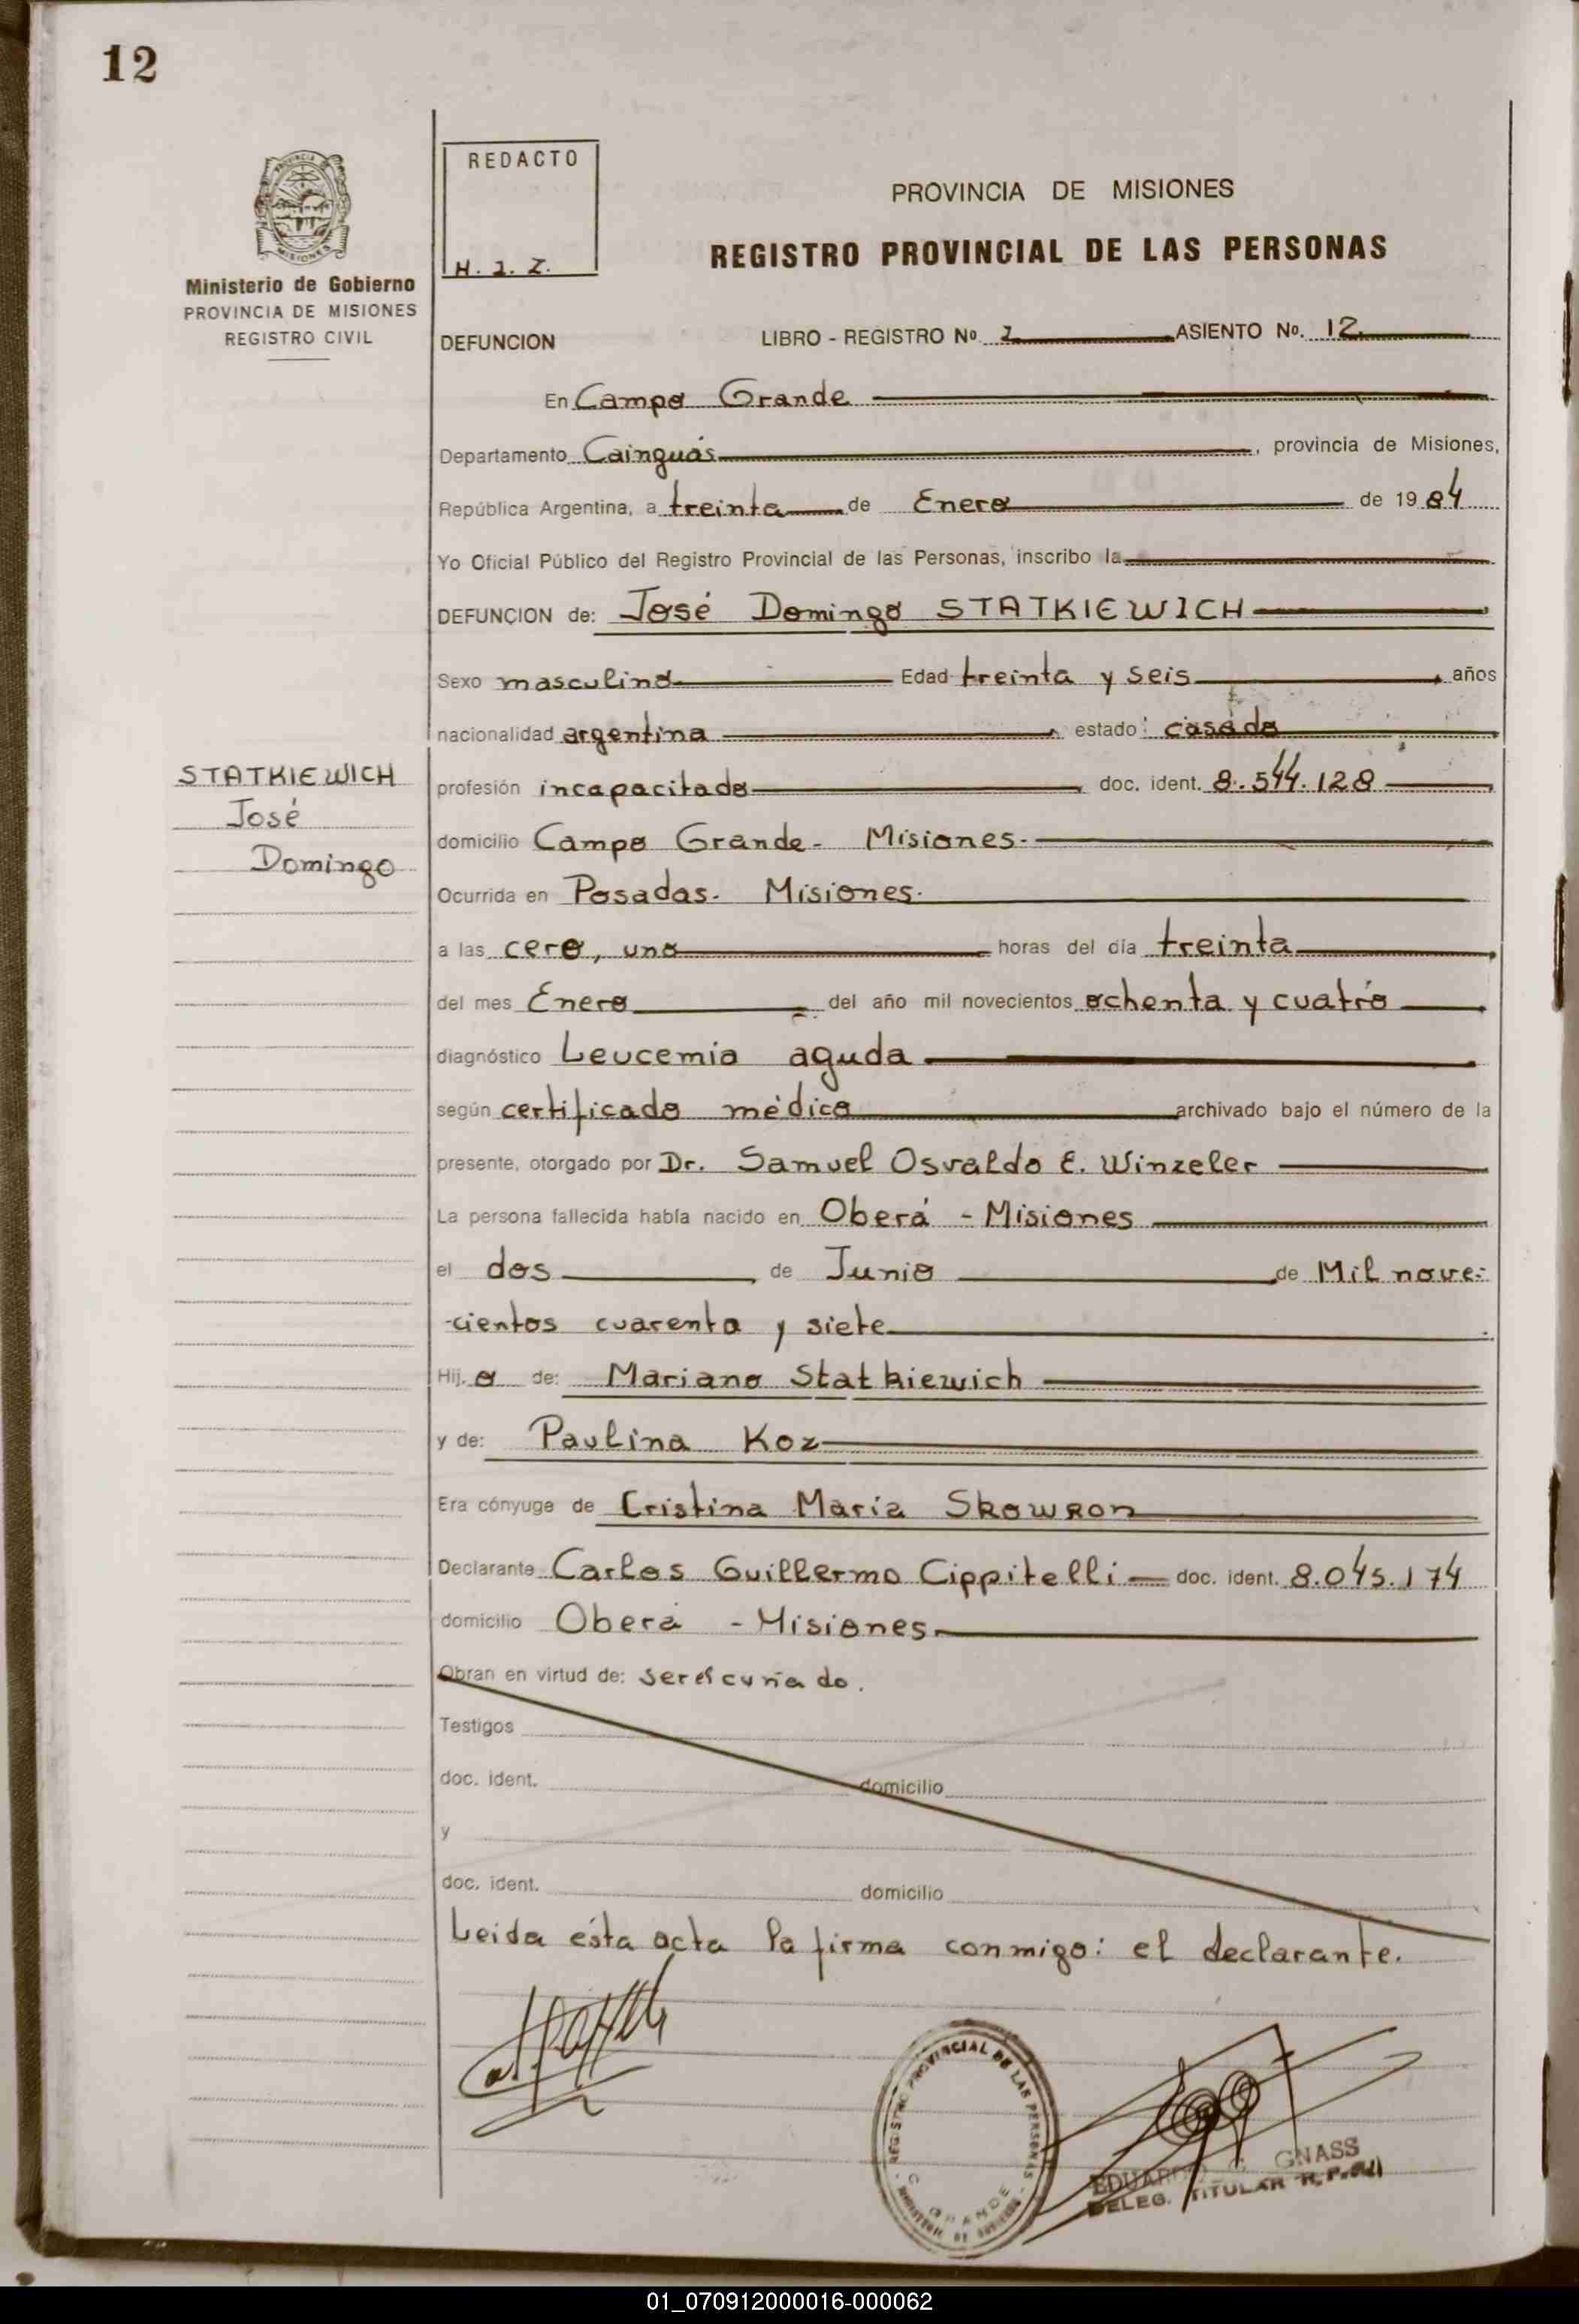 12
REDACTO
PROVINCIA DE MISIONES
REGISTRO PROVINCIAL DE LAS PERSONAS
Ministerio de Gobierno
PROVINCIA DE MISIONES
REGISTRO CIVIL
DEFUNCION LIBRO - REGISTRO Nº ASIENTO Nº. 12
En Campo Grande
Departamento Cainguás, provincia de Misiones,
República Argentina, a treinta de Enero de 1984
Yo Oficial Público del Registro Provincial de las Personas, inscribo la
DEFUNCION de: José Domingo STATKIEWICH
Sexo masculino Edad treinta y seis, años
nacionalidad argentina, estado: casado
STATKIEWICH
José
Domingo
profesión incapacitado, doc. ident. 8.544.128
domicilio Campo Grande - Misiones.
Ocurrida en Posadas. Misiones.
a las cero, uno horas del día treinta
del mes Enero del año mil novecientos ochenta y cuatro
diagnóstico Leucemia aguda
según certificado médico archivado bajo el número de la
presente, otorgado por Dr. Samuel Osvaldo E. Winzeler
La persona fallecida había nacido en Oberá - Misiones
el dos, de Junio de Mil nove-
-cientos cuarenta y siete
Hij.o de: Mariano Statkiewich
y de: Paulina Koz
Era cónyuge de Cristina María Skowron
Declarante Carlos Guillermo Cippitelli doc. ident. 8.045.174
domicilio Oberá - Misiones
Obran en virtud de: ser el cuñado.
Testigos
doc. ident. domicilio
y
doc. ident. domicilio
Leida ésta acta la firma conmigo: el declarante.
REGISTRO PROVINCIAL DE LAS PERSONAS
EDUARDO GNASS
DELEG. TITULAR
01_070912000016-000062